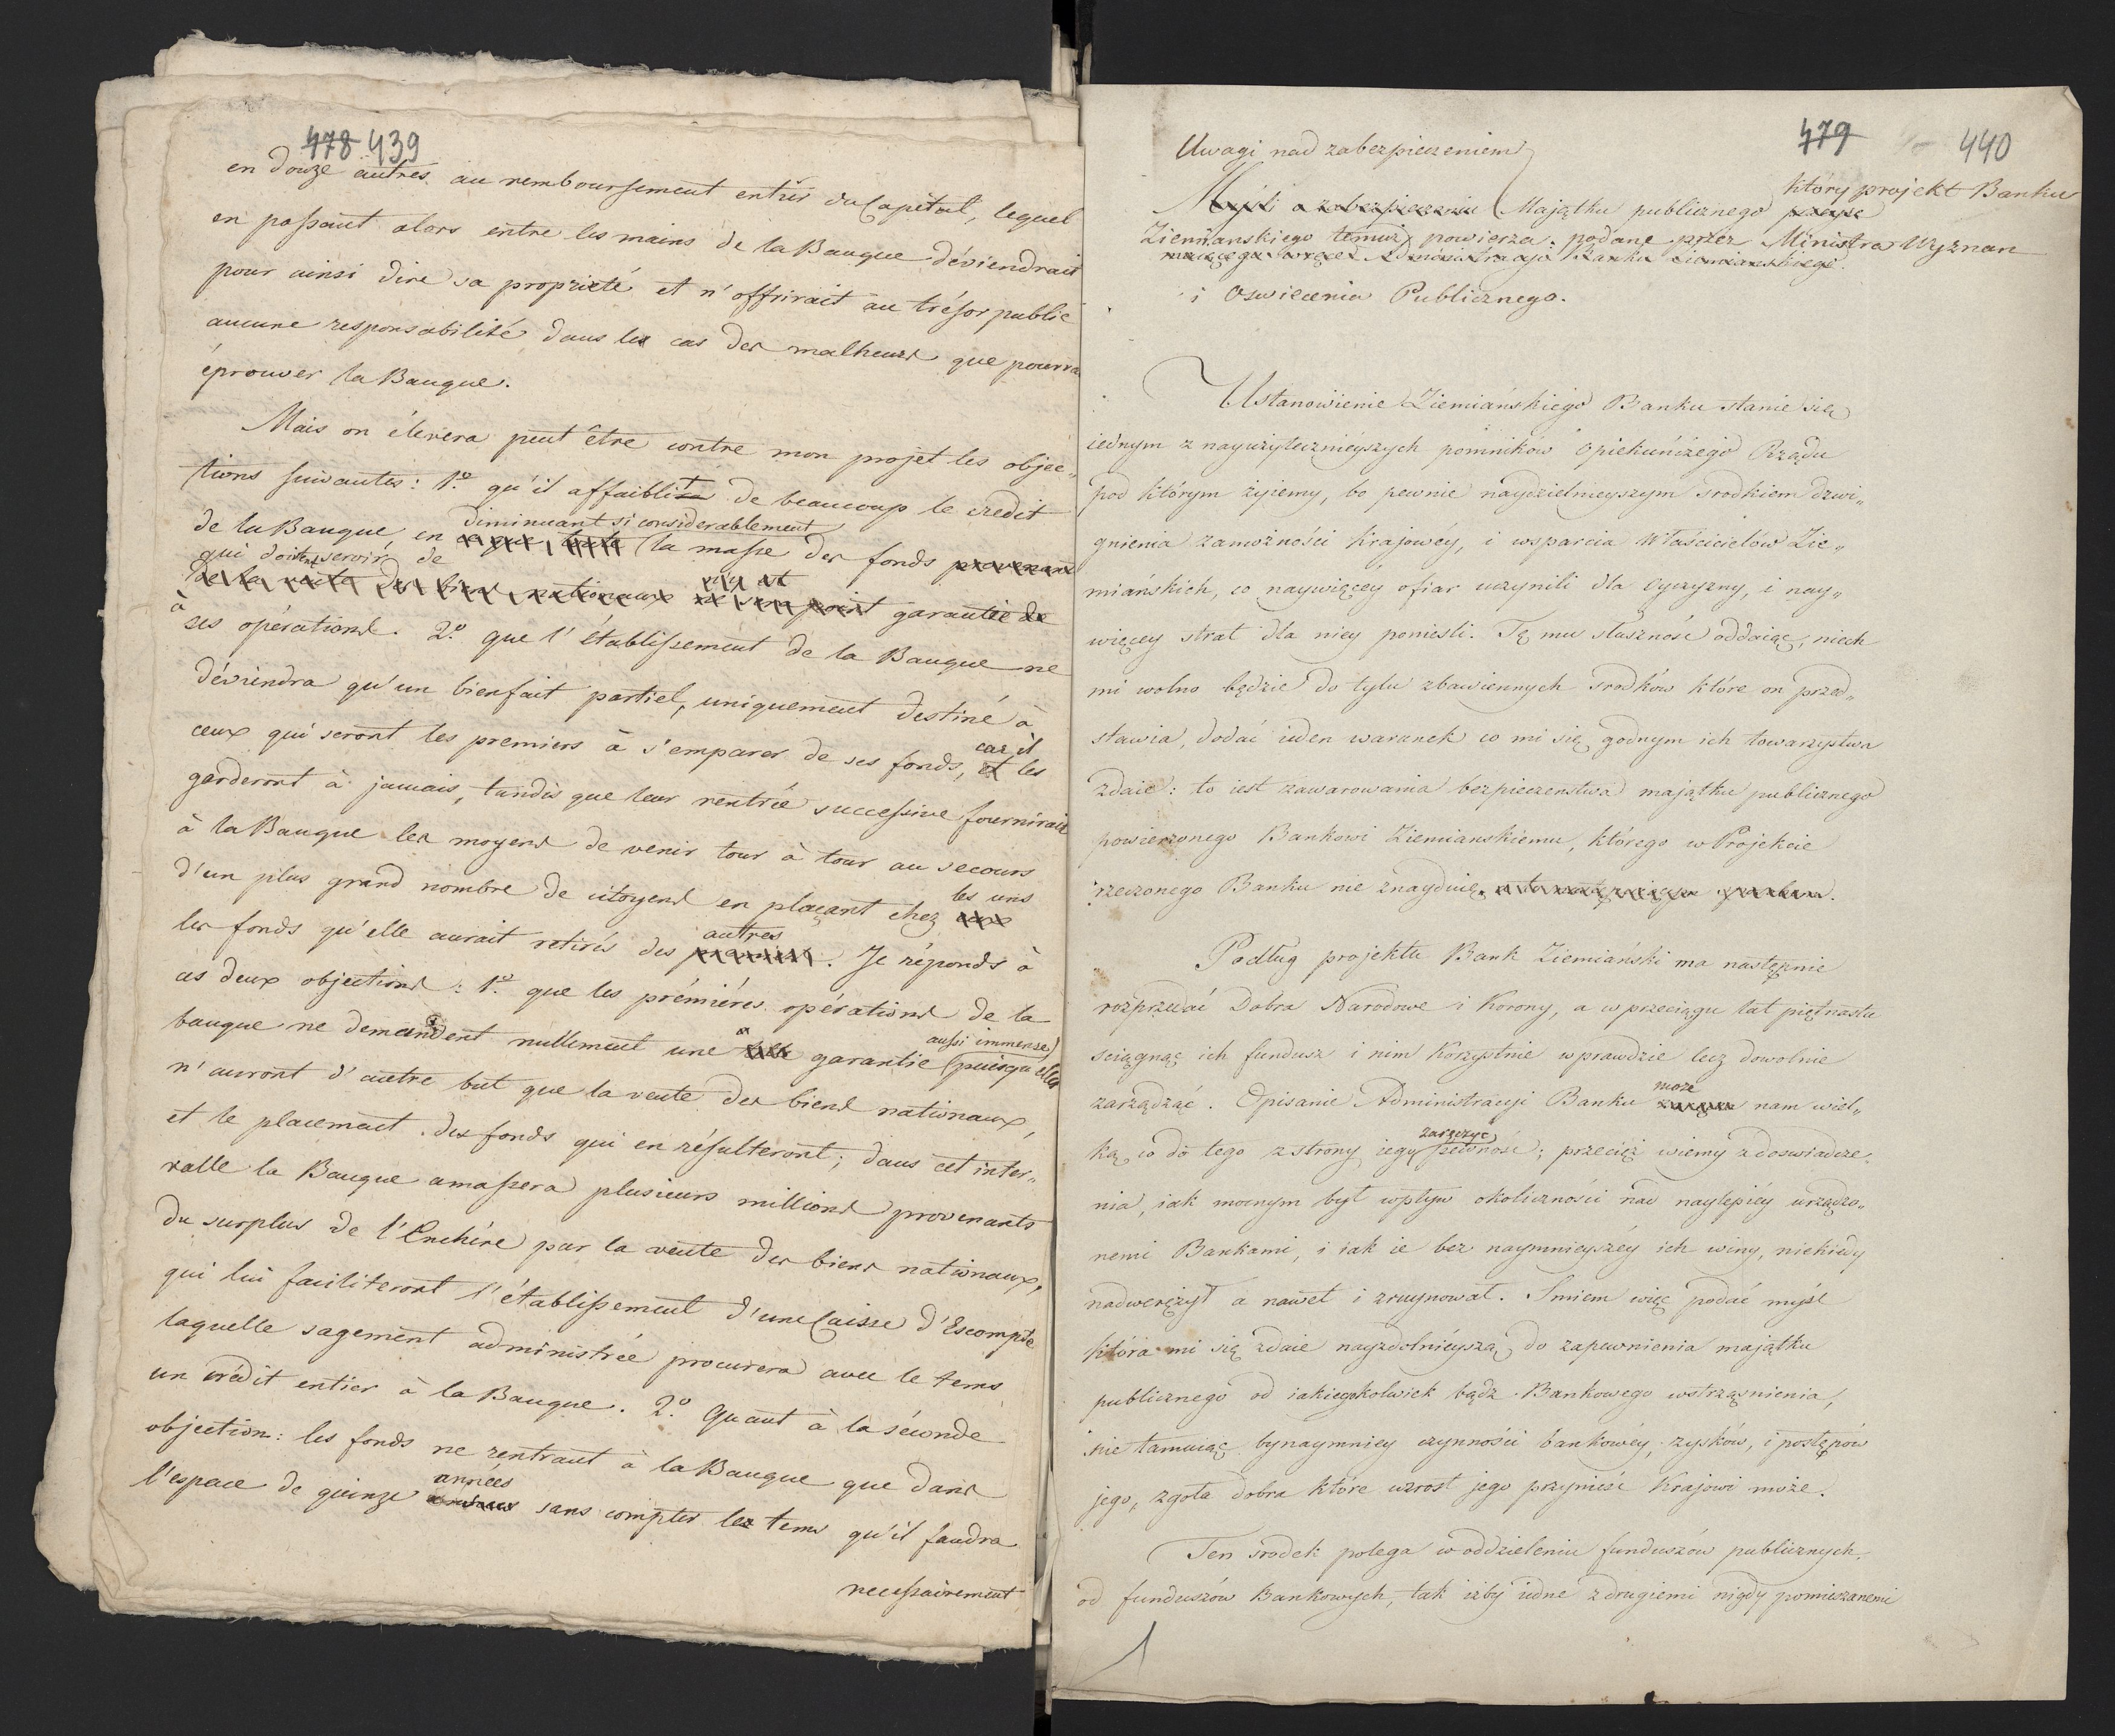 478 439
en douze autres au remboursement entier du Capital, lequel
en passant alors entre les mains de la Banque déviendrait
pour ainsi dire sa proprieté et n'offrirait au trésor public
aucune responsabilité dans les cas des malheurs que pourra
éprouver la Banque.
Mais on élevera peut être contre mon projet les objec„
tions suivantes: 1º qu'il affaiblit de beaucoup le credit
de la Banque, en diminuant si considerablement la masse des fonds provenans
qui doivent servir de
de la vente des biens nationaux garantie de
à ses opérations. 2º que l'établissement de la Banque ne
déviendra qu'un bienfait partiel, uniquement destiné à
ceux qui seront les premiers à s'emparer de ses fonds, et car il les
garderont à jamais, tandis que leur rentrée successive fournirait
à la Banque les moyens de venir tour à tour au secours
d'un plus grand nombre de citoyens en plaçant chez les uns
les fonds qu'elle aurait retirés des premiers autres. Je réponds à
ces deux objections: 1º que les prémiéres opérations de la
banque ne demandent nullement une garantie aussi immense puisqu'elles
n'auront d'autre but que la vente des biens nationaux,
et le placement des fonds qui en résulteront; dans cet inter„
valle la Banque amassera plusieurs millions provenants
du surplus de l'Enchére par la vente des biens nationaux,
qui lui faciliteront l'établissement d'une Caisse d'Escompte
laquelle sagement administrée procurera avec le tems
un crédit entier à la Banque. 2º Quant à la séconde
objection: les fonds ne rentrant à la Banque que dans
l'espace de quinze années sans compter les tems qu'il faudra
necessairement
479 440
Uwagi nad zabezpieczeniem
który projekt Banku
Myśli o zabezpieczeniu Majątku publicznego
Ziemianskiego temuż powierza: podane przez Ministra Wyznan
i Oswiecenia Publicznego.
Ustanowienie Ziemiańskiego Banku stanie się
iednym z nayużytecznieyszych pomników Opiekuńczego Rządu
pod którym żyiemy, bo pewnie naydzielnieyszym srodkiem dzwi„
gnienia zamożności Krajowey, i wsparcia Właścicielów Zie„
miańskich, co naywięcéy ofiar uczynili dla Oyczyzny, i nay„
więcey strat dla niey poniesli. Tę mu słuszność oddaiąc, niech
mi wolno będzie do tylu zbawiennych srodków które on przed„
stawia, dodać ieden warunek co mi się godnym ich towarzystwa
zdaie: to iest zawarowania bezpieczenstwa majątku publicznego
powierzonego Bankowi Ziemianskiemu, którego w Projekcie
rzeczonego Banku nie znayduię.
Podług projektu Bank Ziemiański ma następnie
rozprzedać Dobra Narodowe i Korony, a w przeciągu lat piętnastu
sciągnąć ich fundusz i nim Korzystnie wprawdzie lecz dowolnie
zarządzać. Opisanie Administracyi Banku może nam wiel„
ką co do tego z strony iego zaręczyć pewność; przecież wiemy z doswiadcze„
nia, iak mocnym był wpływ okoliczności nad naylepiéy urządzo„
nemi Bankami, i iak ie bez naymnieyszéy ich winy, niekiedy
nadwerężył a nawet i zruynował. Smiem więc podać myśl
która mi się zdaie nayzdolnieyszą do zapewnienia majątku
publicznego od iakiegokolwiek bądz Bankowego wstrząsnienia,
nie tamuiąc bynaymniey czynności bankowéy, zysków, i postępów
jego, zgoła dobra które wzrost jego przynieść Krajowi może.
Ten srodek polega w oddzieleniu funduszów publicznych
od funduszów Bankowych, tak iżby iedne z drugiemi nigdy pomieszanemi